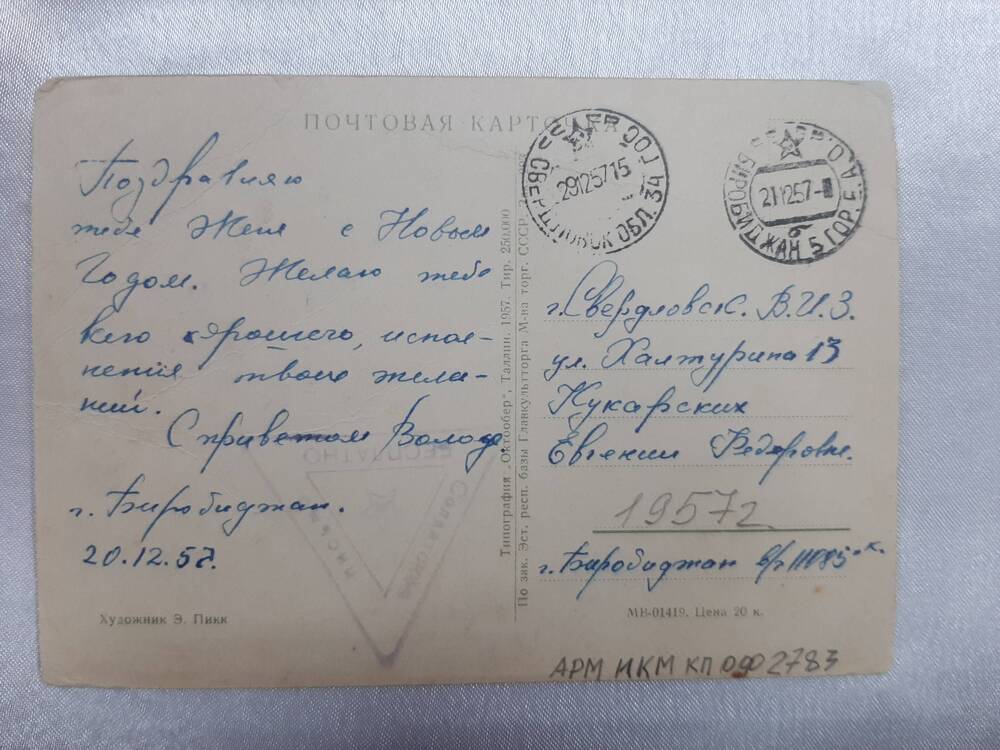 ПОЧТОВАЯ КАРТОЧКА
Поздравляю
тебя Женя с Новым
Годом. Желаю тебе
всего хорошего, испол-
нения твоих жела-
ний.
С приветом Володя.
г. Биробиджан.
20.12.57.
Художник Э. Пикк
Солдатское
письмо
БЕСПЛАТНО
Типография „Октообер", Таллин. 1957. Тир. 250.000
По зак. Эст. респ. базы Главкультторга М-ва торг. СССР.
СВЕРДЛОВСК ОБЛ. 34 ГОС
29125715
БИРОБИДЖАН 5 ГОР ЕАО
211257-
б
г. Свердловск. В.И.З.
ул. Халтурина 13
Кукарских
Евгении Федоровне.
1957г
г. Биробиджан в/ч 11085 "К."
МВ-01419. Цена 20 к.
АРМ ИКМ КП ОФ 2783